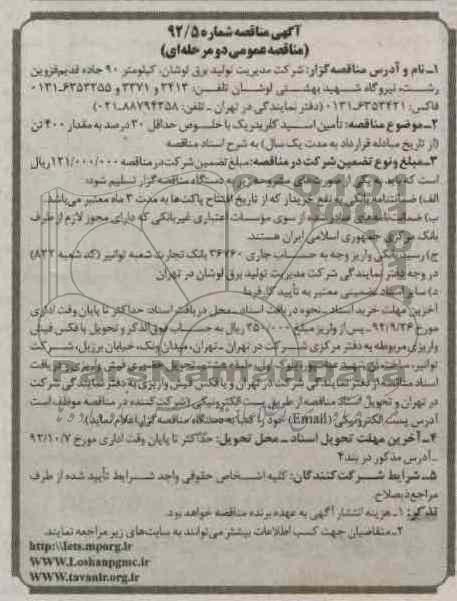 آگهی مناقصه شماره ۹۲/۵
(مناقصه عمومی دو مرحله‌ای)
۱ـ نام و آدرس مناقصه‌گزار: شرکت مدیریت تولید برق لوشان، کیلومتر ۹۰ جاده قدیم قزوین
رشت، نیروگاه شهید بهشتی لوشان تلفن: ۳۴۱۳ و ۳۳۷۱ و ۶۳۵۳۲۵۵-۰۱۳۱
فاکس: ۶۳۵۳۴۲۱-۰۱۳۱ (دفتر نمایندگی در تهران ـ تلفن: ۸۸۷۹۴۳۵۸-۰۲۱)
۲ـ موضوع مناقصه: تأمین اسید کلریدریک با خلوص حداقل ۳۰ درصد به مقدار ۴۰۰ تن
(از تاریخ مبادله قرارداد به مدت یک سال) به شرح اسناد مناقصه
۳ـ مبلغ و نوع تضمین شرکت در مناقصه: مبلغ تضمین شرکت در مناقصه ۱۲۱/۰۰۰/۰۰۰ ریال
است که باید به یکی از صورت‌های مشروحه زیر به دستگاه مناقصه‌گزار تسلیم شود:
الف) ضمانتنامه بانکی به نفع خریدار که از تاریخ افتتاح پاکت‌ها به مدت ۳ ماه معتبر می‌باشد.
ب) ضمانت‌نامه‌های از سوی مؤسسات اعتباری غیربانکی که دارای مجوز لازم از طرف
بانک مرکزی جمهوری اسلامی ایران هستند.
ج) رسید بانکی واریز وجه به حساب جاری ۳۶۷۶۰ بانک تجارت شعبه توانیر (کد شعبه ۸۳۲)
در وجه دفتر نمایندگی شرکت مدیریت تولید برق لوشان در تهران
د) سایر اسناد تضمینی معتبر به تأیید کارفرما
آخرین مهلت خرید اسناد ـ نحوه دریافت اسناد ـ محل دریافت اسناد: حداکثر تا پایان وقت اداری
مورخ ۹۲/۹/۲۶ ـ پس از واریز مبلغ ۳۵۰/۰۰۰ ریال به حساب فوق‌الذکر و تحویل یا فکس فیش
واریزی مربوطه به دفتر مرکزی شرکت در تهران ـ تهران، میدان ونک، خیابان برزیل، شرکت
توانیر، ساختمان طبقه هشتم تحویل حضوری فیش واریزی و دریافت
اسناد مناقصه از دفتر نمایندگی شرکت در تهران و یا فکس فیش واریزی به دفتر نمایندگی شرکت
در تهران و تحویل اسناد مناقصه از طریق پست الکترونیکی (شرکت‌کننده در مناقصه موظف است
آدرس پست الکترونیکی (Email) خود را کتباً به دستگاه مناقصه‌گزار اعلام نماید).
۴ـ آخرین مهلت تحویل اسناد ـ محل تحویل: حداکثر تا پایان وقت اداری مورخ ۹۲/۱۰/۷
ـ آدرس مذکور در بند ۳
۵ـ شرایط شرکت‌کنندگان: کلیه اشخاص حقوقی واجد شرایط تأیید شده از طرف
مراجع ذیصلاح.
تذکر: ۱ـ هزینه انتشار آگهی به عهده برنده مناقصه خواهد بود.
۲ـ متقاضیان جهت کسب اطلاعات بیشتر می‌توانند به سایت‌های زیر مراجعه نمایند.
http:\\iets.mporg.ir
WWW.Loshanpgmc.ir
WWW.tavanir.org.ir
ParsNamadData